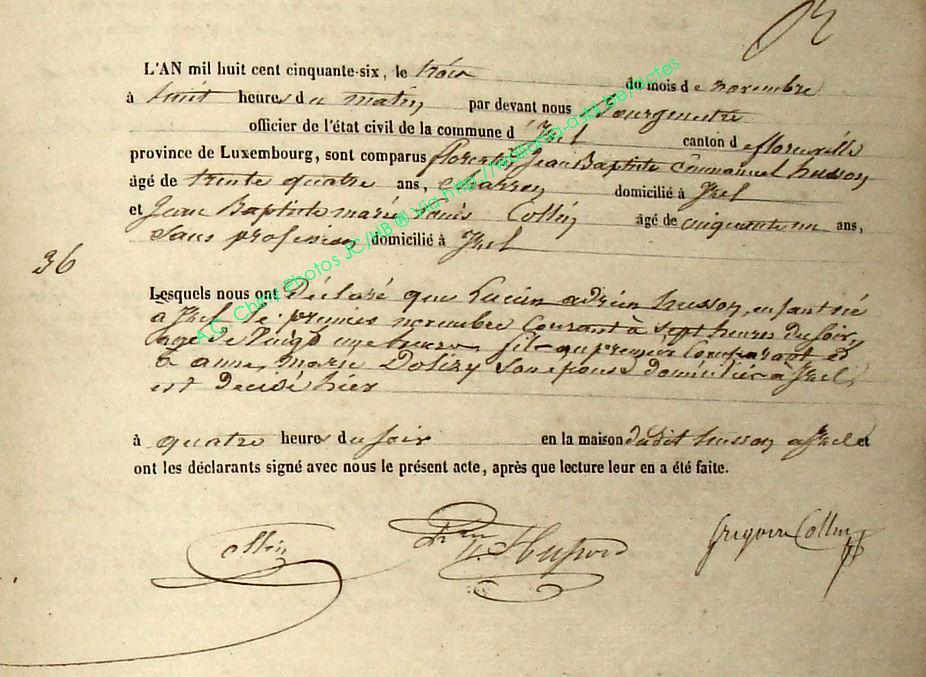 L'AN mil huit cent cinquante-six, le trois du mois de novembre
à huit heures du matin, par devant nous Bourgmestre
officier de l'état civil de la commune d'Izel canton de florenville
province de Luxembourg, sont comparus Jean Baptiste Emmanuel husson
âgé de trente quatre ans, charron domicilié à Izel
et Jean Baptiste marie Louis Collin âgé de cinquante un ans,
sans profession domicilié à Izel
36
Lesquels nous ont déclaré que Lucien adrien husson, enfant né
à Izel le premier novembre courant à sept heures du soir,
agé de vingt une heures, fils au premier Comparant et
à anne marie Dolizy son épouse domiciliée à Izel,
est decédé hier
à quatre heures du soir en la maison du dit husson à Izel et
ont les déclarants signé avec nous le présent acte, après que lecture leur en a été faite.
Collin Husson Grégoire Collin
A.C. Chiny Photos JC/MB ® via http://wallonia-asbl.be/actes